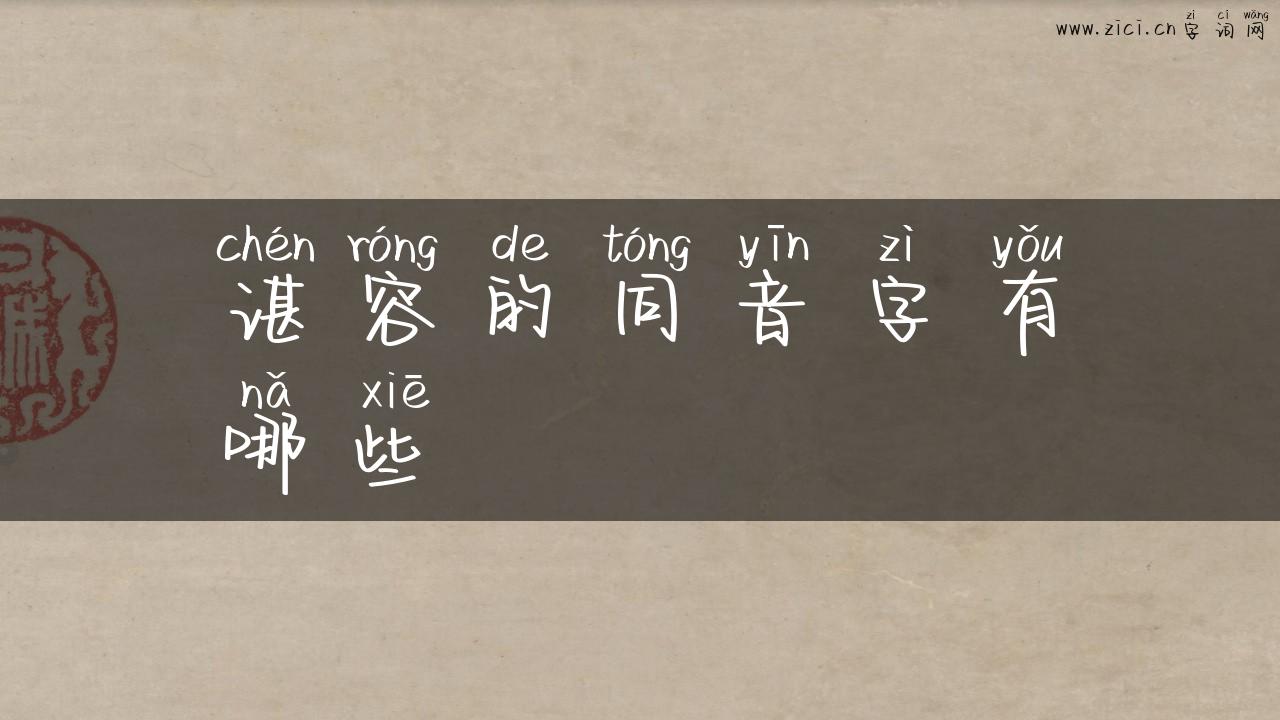 zì cí wǎng
www.zici.cn 字词网
chén róng de tóng yīn zì yǒu
谌容的同音字有
nǎ xiē
哪些